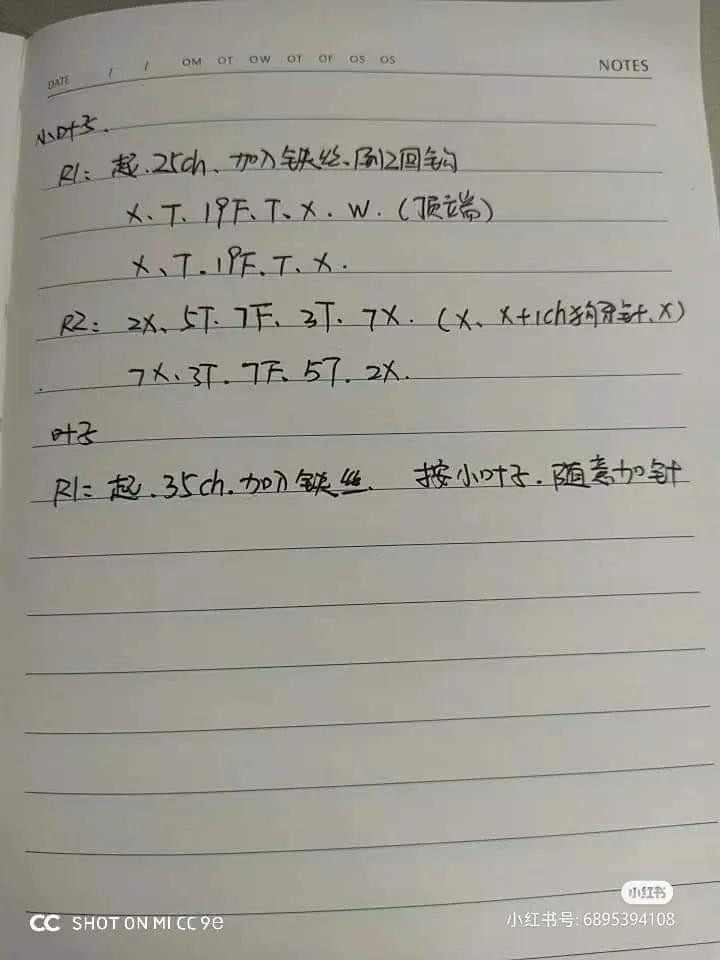 DATE / / OM OT OW OT OF OS OS NOTES
小叶子.
R1: 起.25ch、加入铁丝、倒2回钩
X、T、19F、T、X. W.（顶端）
X、T.19F、T、X.
R2: 2X、5T. 7F、3T. 7X.（X、X+1ch狗牙针、X）
7X、3T. 7F、5T. 2X.
叶子
R1= 起.35ch.加入铁丝. 按小叶子.随意加针
小红书
CC SHOT ON MI CC 9e
小红书号: 6895394108